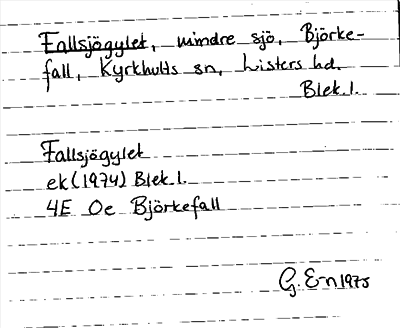 Fallsjögylet, mindre sjö, Björke-
fall, Kyrkhults sn, Listers hd.
Blek.l.
Fallsjögylet
ek (1974) Blek.l.
4E 0e Björkefall
G. E-n 1975